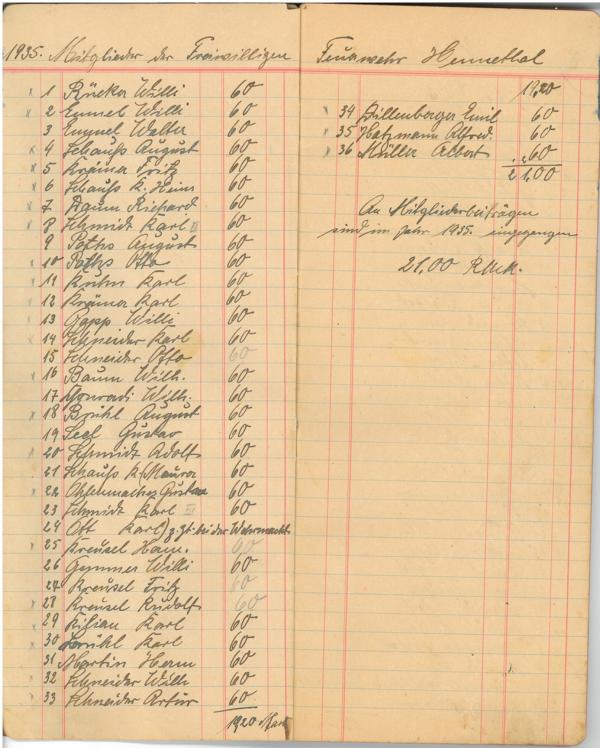 1935. Mitglieder der Freiwilligen Feuerwehr Hennethal
x 1 Rücker Willi 60
x 2 Emmel Willi 60
3 Emmel Walter 60
x 4 Schauß August 60
x 5 Krämer Fritz 60
x 6 Schauß K. Heinr 60
x 7 Daum Richard 60
x 8 Schmidt Karl II 60
9 Poths August 60
x 10 Poths Otto 60
x 11 Kuhn Karl 60
x 12 Krämer Karl 60
x 13 Rapp Willi 60
x 14 Schneider Karl 60
15 Schneider Otto 60
x 16 Baum Wilh. 60
17 Conradi Wilh. 60
x 18 Brühl August 60
19 Seel Gustav 60
x 20 Schmidt Adolf 60
21 Schauß K. Maurer 60
x 22 Gustav 60
23 Schmidt Karl III 60
24 Ott Karl) z. Zt. bei der Wehrmacht
x 25 Kreusel Herm. 60
26 Willi 60
27 Kreusel Fritz 60
x 28 Kreusel Rudolf 60
x 29 Kilian Karl 60
x 30 Karl 60
31 Martin Herm 60
x 32 Schneider Willi 60
x 33 Schneider Artur 60
19,20 Mark
19,20
x 34 Dillenberger Emil 60
x 35 Hatzmann Alfred. 60
x 36 Müller Albert 60
21,00
An Mitgliederbeiträgen
sind im Jahr 1935. eingegangen
21,00 RMk.